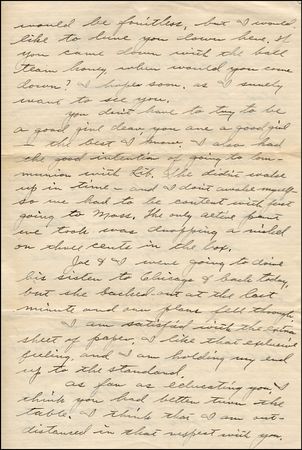 would be fruitless, but I would
like to have you down here. If
you came down with the ball
team honey, when would you come
down? I hope soon, as I surely
want to see you.
You don't have to try to be
a good girl dear, you are a good girl
the best I know. I also had
the good intention of going to com-
munion with Kit. She didn't wake
up in time - and I don't awake myself
so we had to be content with just
going to Mass. The only active part
we took was dropping a nickel
or three cents in the box.
Joe & I were going to drive
his sister to Chicago & back today,
but she backed out at the last
minute and our plans fell through.
I am satisfied with the extra
sheet of paper. I like that
feeling, and I am holding my end
up to the standard.
As far as educating you, I
think you had better turn the
table. I think that I am out-
distanced in that respect with you.